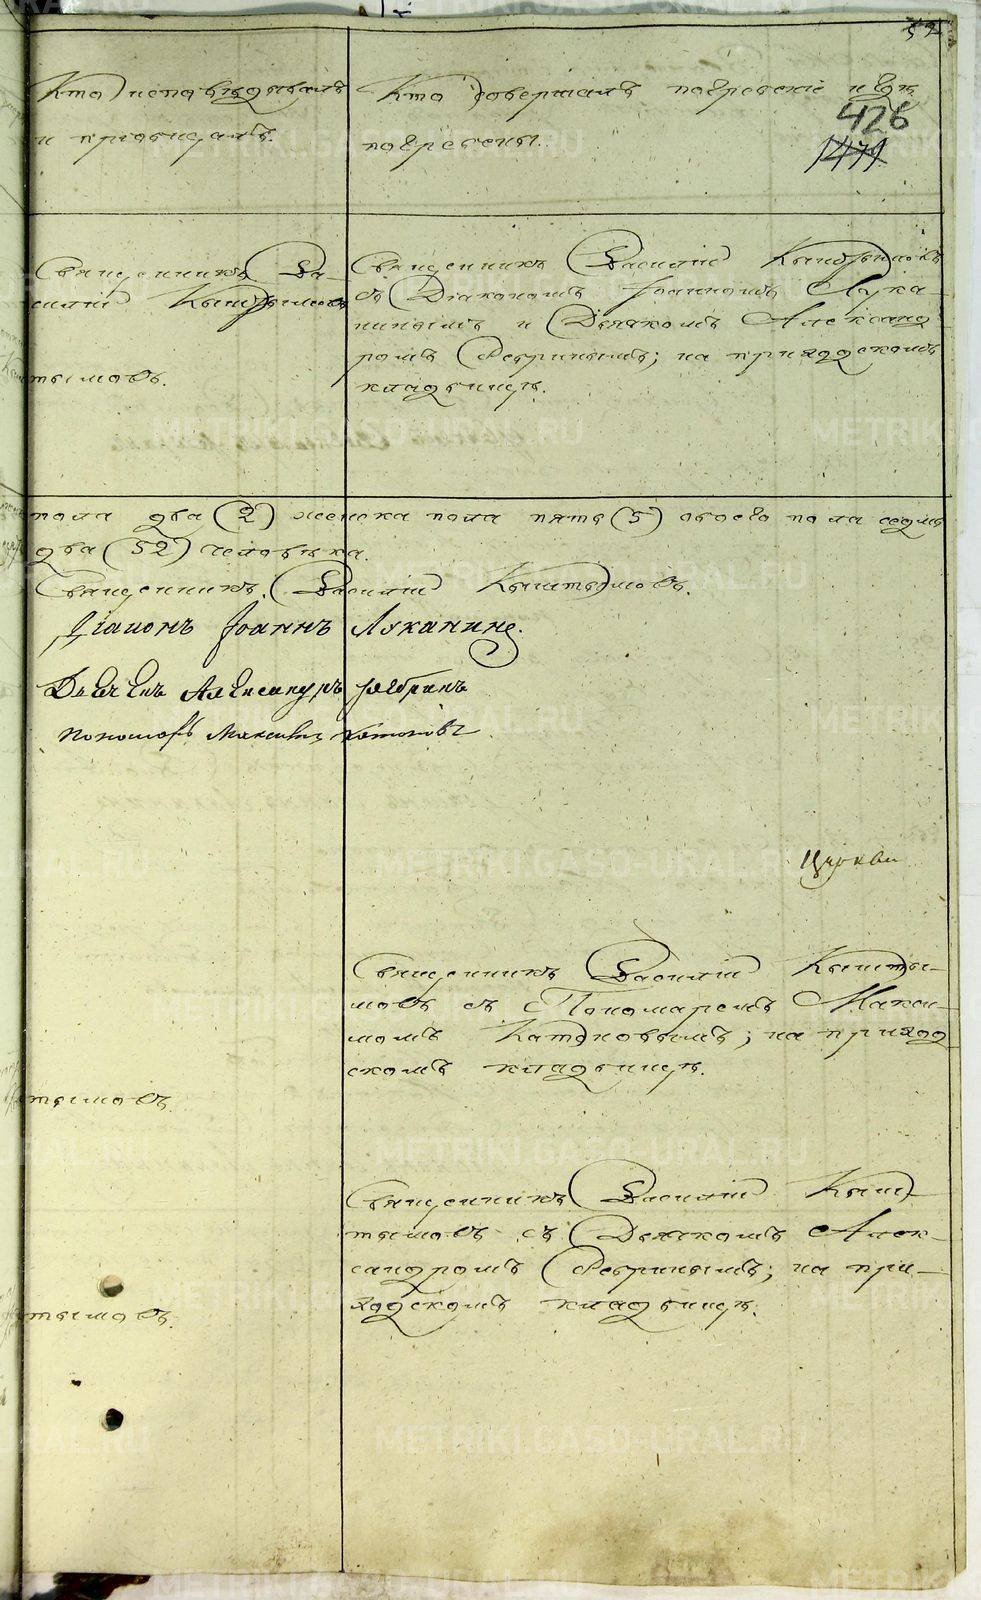 Кто исповѣдывалъ
и пріобщалъ.
Кто совершалъ погребеніе и гдѣ
погребены.
426
1471
Священникъ Ва-
силій Кыштымовъ
Священникъ Василій Кыштымовъ
съ Діакономъ Іоанномъ Лука-
нинымъ и Дьячкомъ Александ
ромъ Ребринымъ; на приходскомъ
кладбищѣ.
тымовъ.
пола два (2) женска пола пять (5) обоего пола седмь
два (52) человѣка.
Священникъ Василій Кыштымовъ.
Діаконъ Іоаннъ Луканинъ.
Дьячекъ Александръ Ребринъ
Пономарь Максимъ Катоновъ
Церкви
Священникъ Василій Кышты-
мовъ съ Пономаремъ Макси-
момъ Катоновымъ; на приход
скомъ кладбищѣ.
тымовъ.
Священникъ Василій Кыш-
тымовъ съ Дьячкомъ Алек-
сандромъ Ребринымъ; на при-
ходскомъ кладбищѣ.
тымовъ.
METRIKI.GASO-URAL.RU